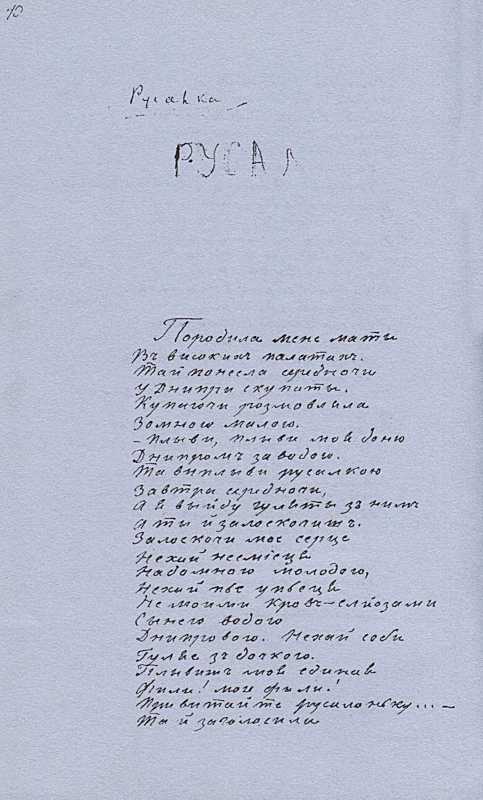 Русалка
РУСАЛ
Породила мене мати
Въ високихъ палатахъ.
Тай понесла середночи
У Днипри скупаты.
Купаючи розмовляла
Зомною малою.
— Плыви, плыви моя доню
Днипромъ за водою.
Та выплыви русалкою
Завтра середночи,
А я выйду гуляты зъ нимъ
А ты й залоскочишъ.
Залоскочи мое серце
Нехай несміеця
Надомною молодою,
Нехай пье упьеця
Не моими кровъ-слiозами
Сынею водою
Днипровою. Нехай соби
Гуляе зъ дочкою.
Пливишъ моя единая
Фили! мои фили!
Привитайте русалоньку... —
Та й заголосила